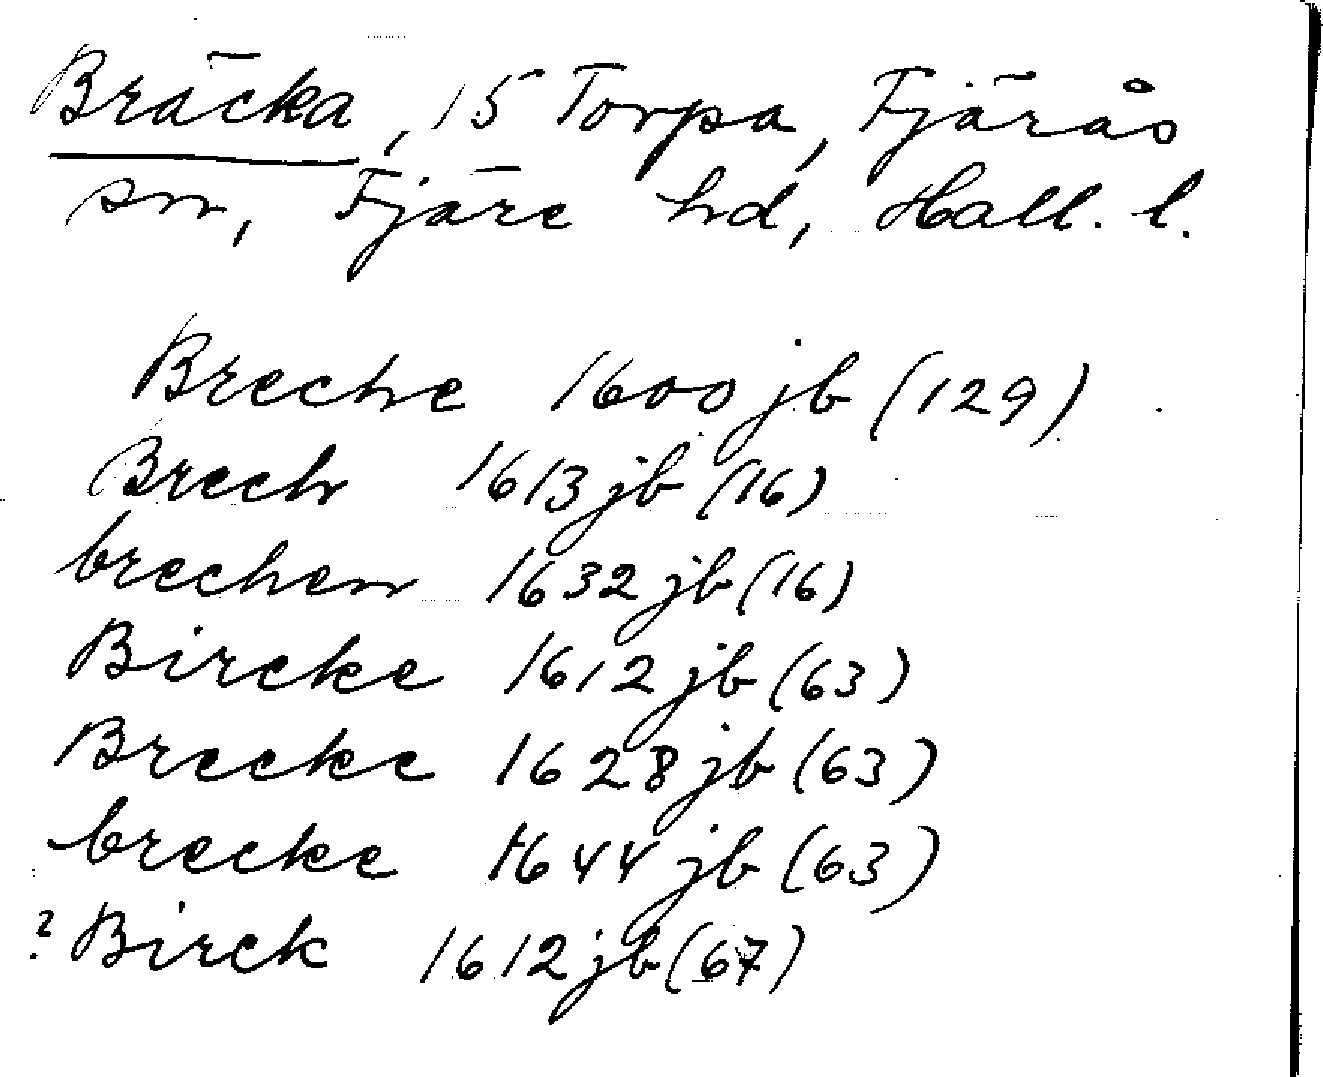 Bräcka, 15 Torpa, Fjärås
sn, Fjäre hd, Hall. l.
Breche 1600 jb (129)
Brech 1613 jb (16)
brechen 1632 jb (16)
Bircke 1612 jb (63)
Brecke 1628 jb (63)
brecke 1644 jb (63)
? Birck 1612 jb (67)